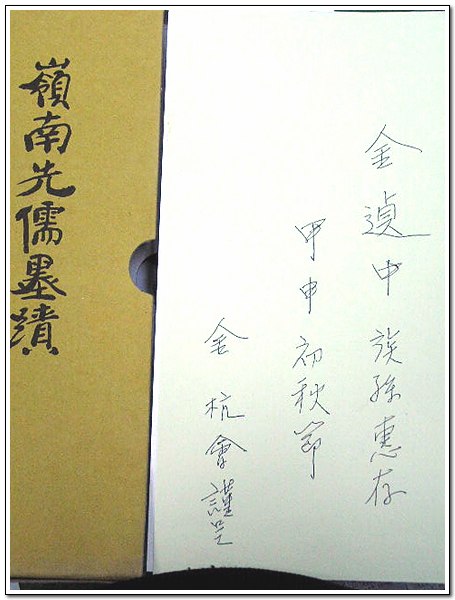 嶺南先儒墨蹟
金遉中族孫惠存
甲申初秋節
金杭會謹呈